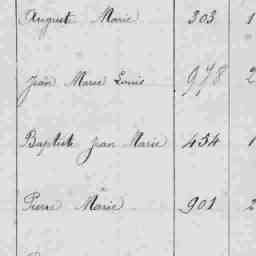 August Marie 303 1
Jean Marie Louis 978 2
Baptiste Jean Marie 454 1
Pierre Marie 901 2